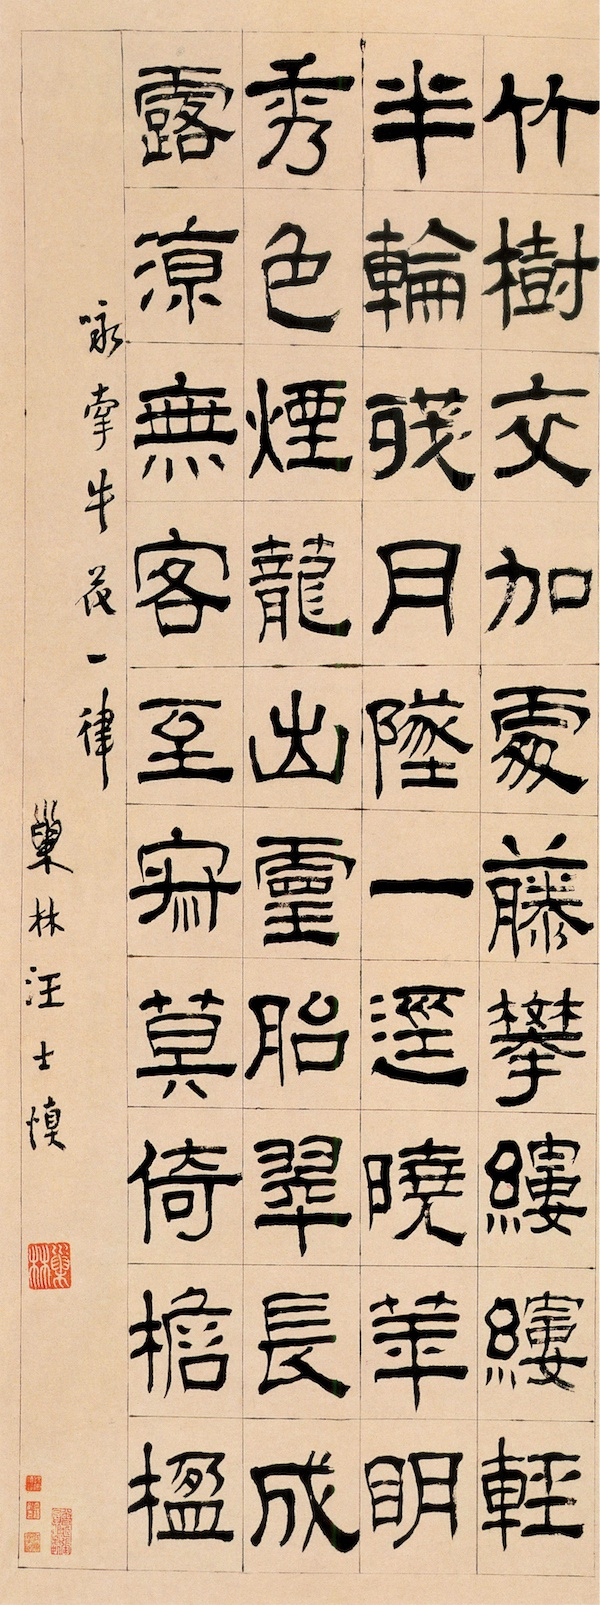 竹樹交加處藤攀縷縷輕
半輪殘月墜一逕曉華明
秀色煙籠出靈胎翠長成
露涼無客至寂莫倚檐楹
咏牽牛花一律
巢林汪士慎
巢林